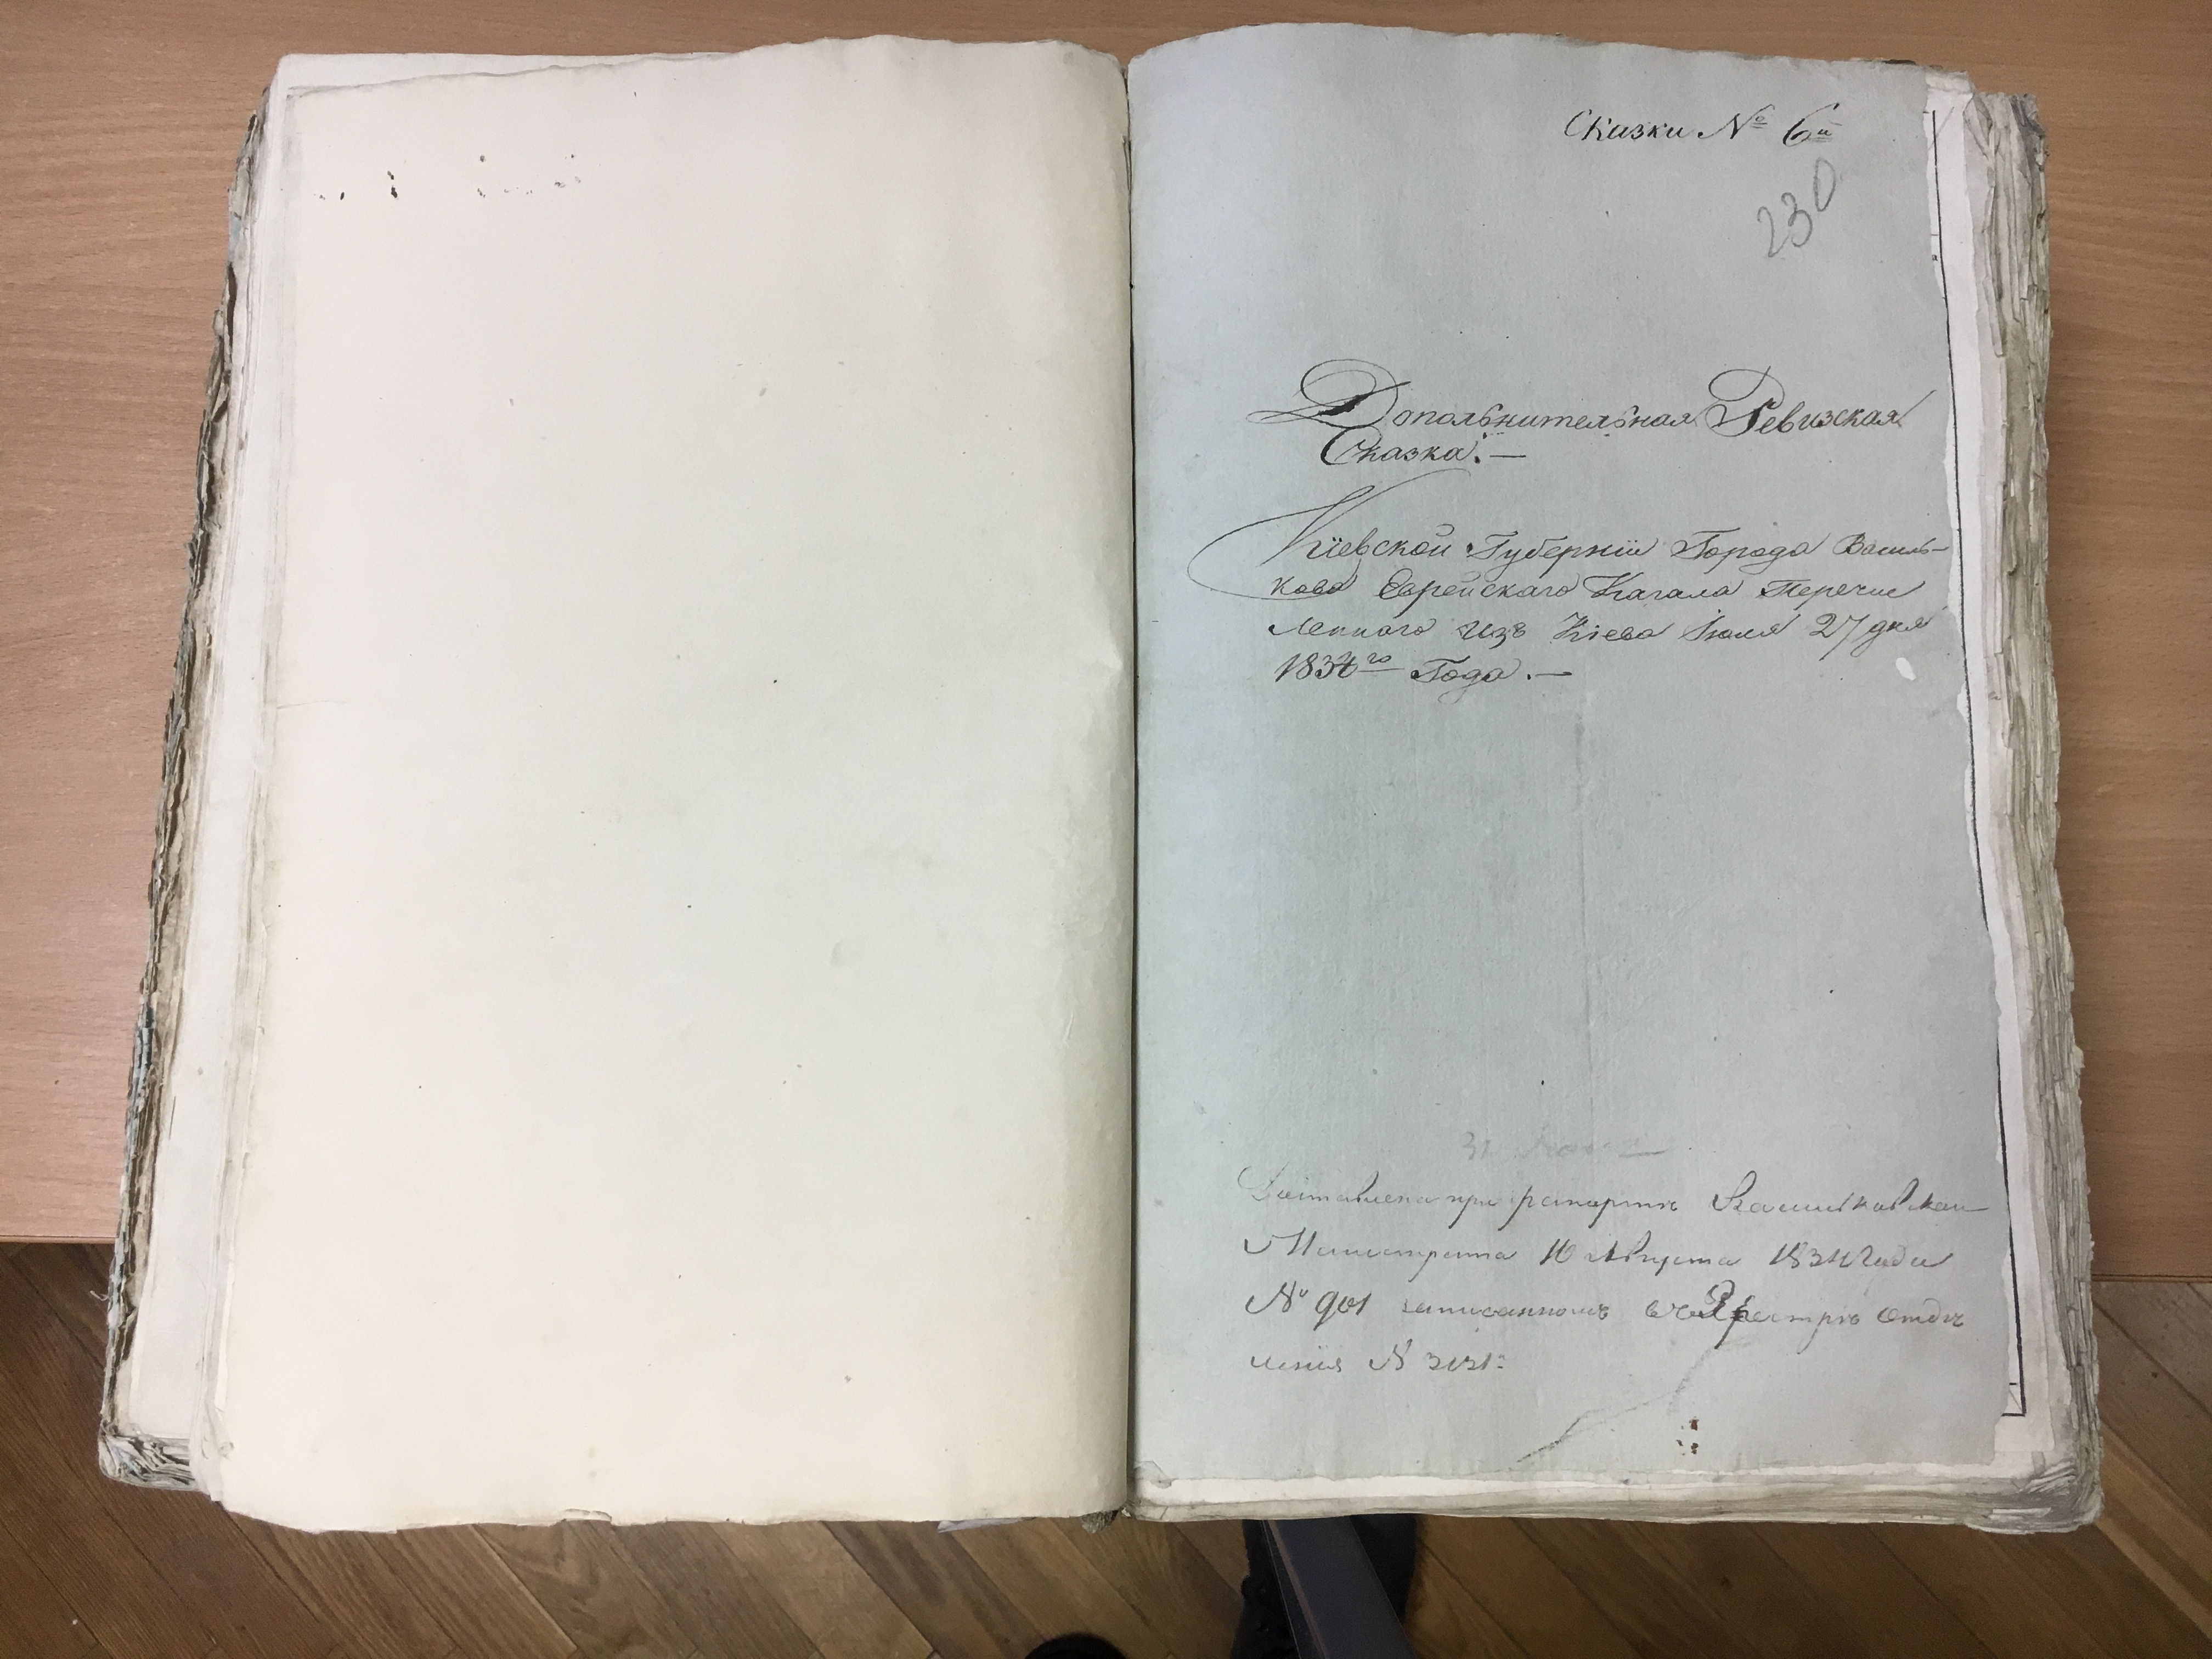 Сказки № 6й
230
Дополънительная Ревизская
Сказка. —
Кіевской Губерніи Города Василь-
кова Еврейскаго Кагала Перечис
леннаго изъ Кіева Іюля 27 дня
1834го Года. —
Доставлена при рапортѣ Васильковскаго
Магистрата 10 Августа 1834 Года
№ 901 записанномъ въ Реэстръ Отдѣ
ленія №